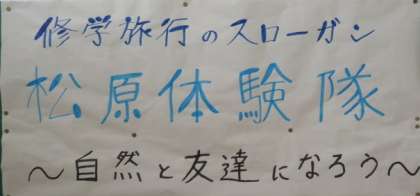 修学旅行のスローガン
松原体験隊
～自然と友達になろう～